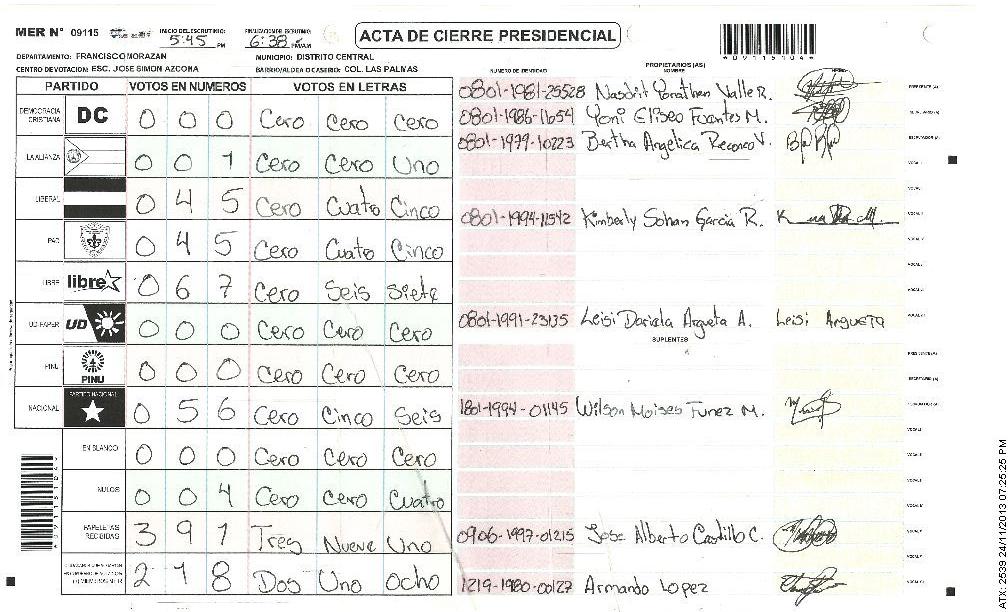 MER N° 09115 INICIO DEL ESCRUTINIO: 5:45 PM FINALIZACION DE ESCRUTINIO: 6:38 PM/AM ACTA DE CIERRE PRESIDENCIAL
DEPARTAMENTO: FRANCISCO MORAZAN MUNICIPIO: DISTRITO CENTRAL
CENTRO DE VOTACION: ESC. JOSE SIMON AZCONA BARRIO/ALDEA O CASERIO: COL. LAS PALMAS
PARTIDO VOTOS EN NUMEROS VOTOS EN LETRAS
DEMOCRACIA CRISTIANA DC 0 0 0 Cero Cero Cero
LA ALIANZA 0 0 1 Cero Cero Uno
LIBERAL 0 4 5 Cero Cuatro Cinco
PAC 0 4 5 Cero Cuatro Cinco
LIBRE libre 0 6 7 Cero Seis Siete
UD-FAPER UD 0 0 0 Cero Cero Cero
PINU PINU 0 0 0 Cero Cero Cero
NACIONAL PARTIDO NACIONAL 0 5 6 Cero Cinco Seis
EN BLANCO 0 0 0 Cero Cero Cero
NULOS 0 0 4 Cero Cero Cuatro
PAPELETAS RECIBIDAS 3 9 1 Tres Nueve Uno
2 1 8 Dos Uno Ocho
*09115104*
PROPIETARIOS (AS)
NUMERO DE IDENTIDAD NOMBRE
0801-1981-25528 PRESIDENTE (A)
0801-1986-11654 Yoni Eliseo Fuentes M. SECRETARIO (A)
0801-1979-10223 Bertha Angelica Reconco V. ESCRUTADOR (A)
0801-1994-11542 Kimberly Sohan Garcia R.
0801-1991-23135 Leisi Dariela Argueta A. Leisi Argueta
SUPLENTES
PRESIDENTE (A)
SECRETARIO (A)
1801-1994-01145 Wilson Moises Funez M.
0906-1997-01215 Jose Alberto Castillo C.
1219-1980-00127 Armando Lopez
ATX: 2539 24/11/2013 07:25:25 PM